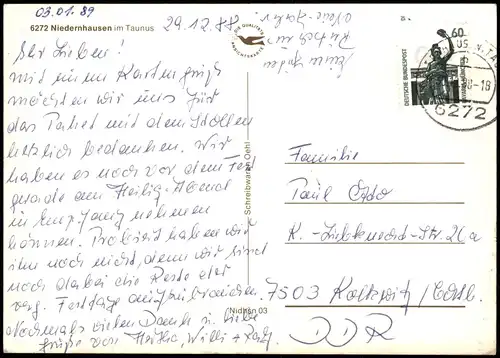 03.01.89
6272 Niedernhausen im Taunus
29.12.88
Ihr Lieben!
mit einem Kartengruß
möchten wir uns für
das Paket mit dem Stollen
herzlich bedanken. Wir
haben es noch vor dem Fest
gerade am Heilig-Abend
in Empfang nehmen
können. Probiert haben wir
ihn noch nicht, denn wir sind
noch dabei die Reste der
verg. Festtage aufzubrauchen.
Nochmals vielen Dank u. liebe
Grüße von Willi +
Einen guten
Rutsch ins
Neue Jahr!
Schreibwaren Oehl
Nidhsn 03
60
DEUTSCHE BUNDESPOST
6272
Familie
Paul
K.-Liebknecht-Str. 20a
7503 Kolkwitz/Cottb.
DDR